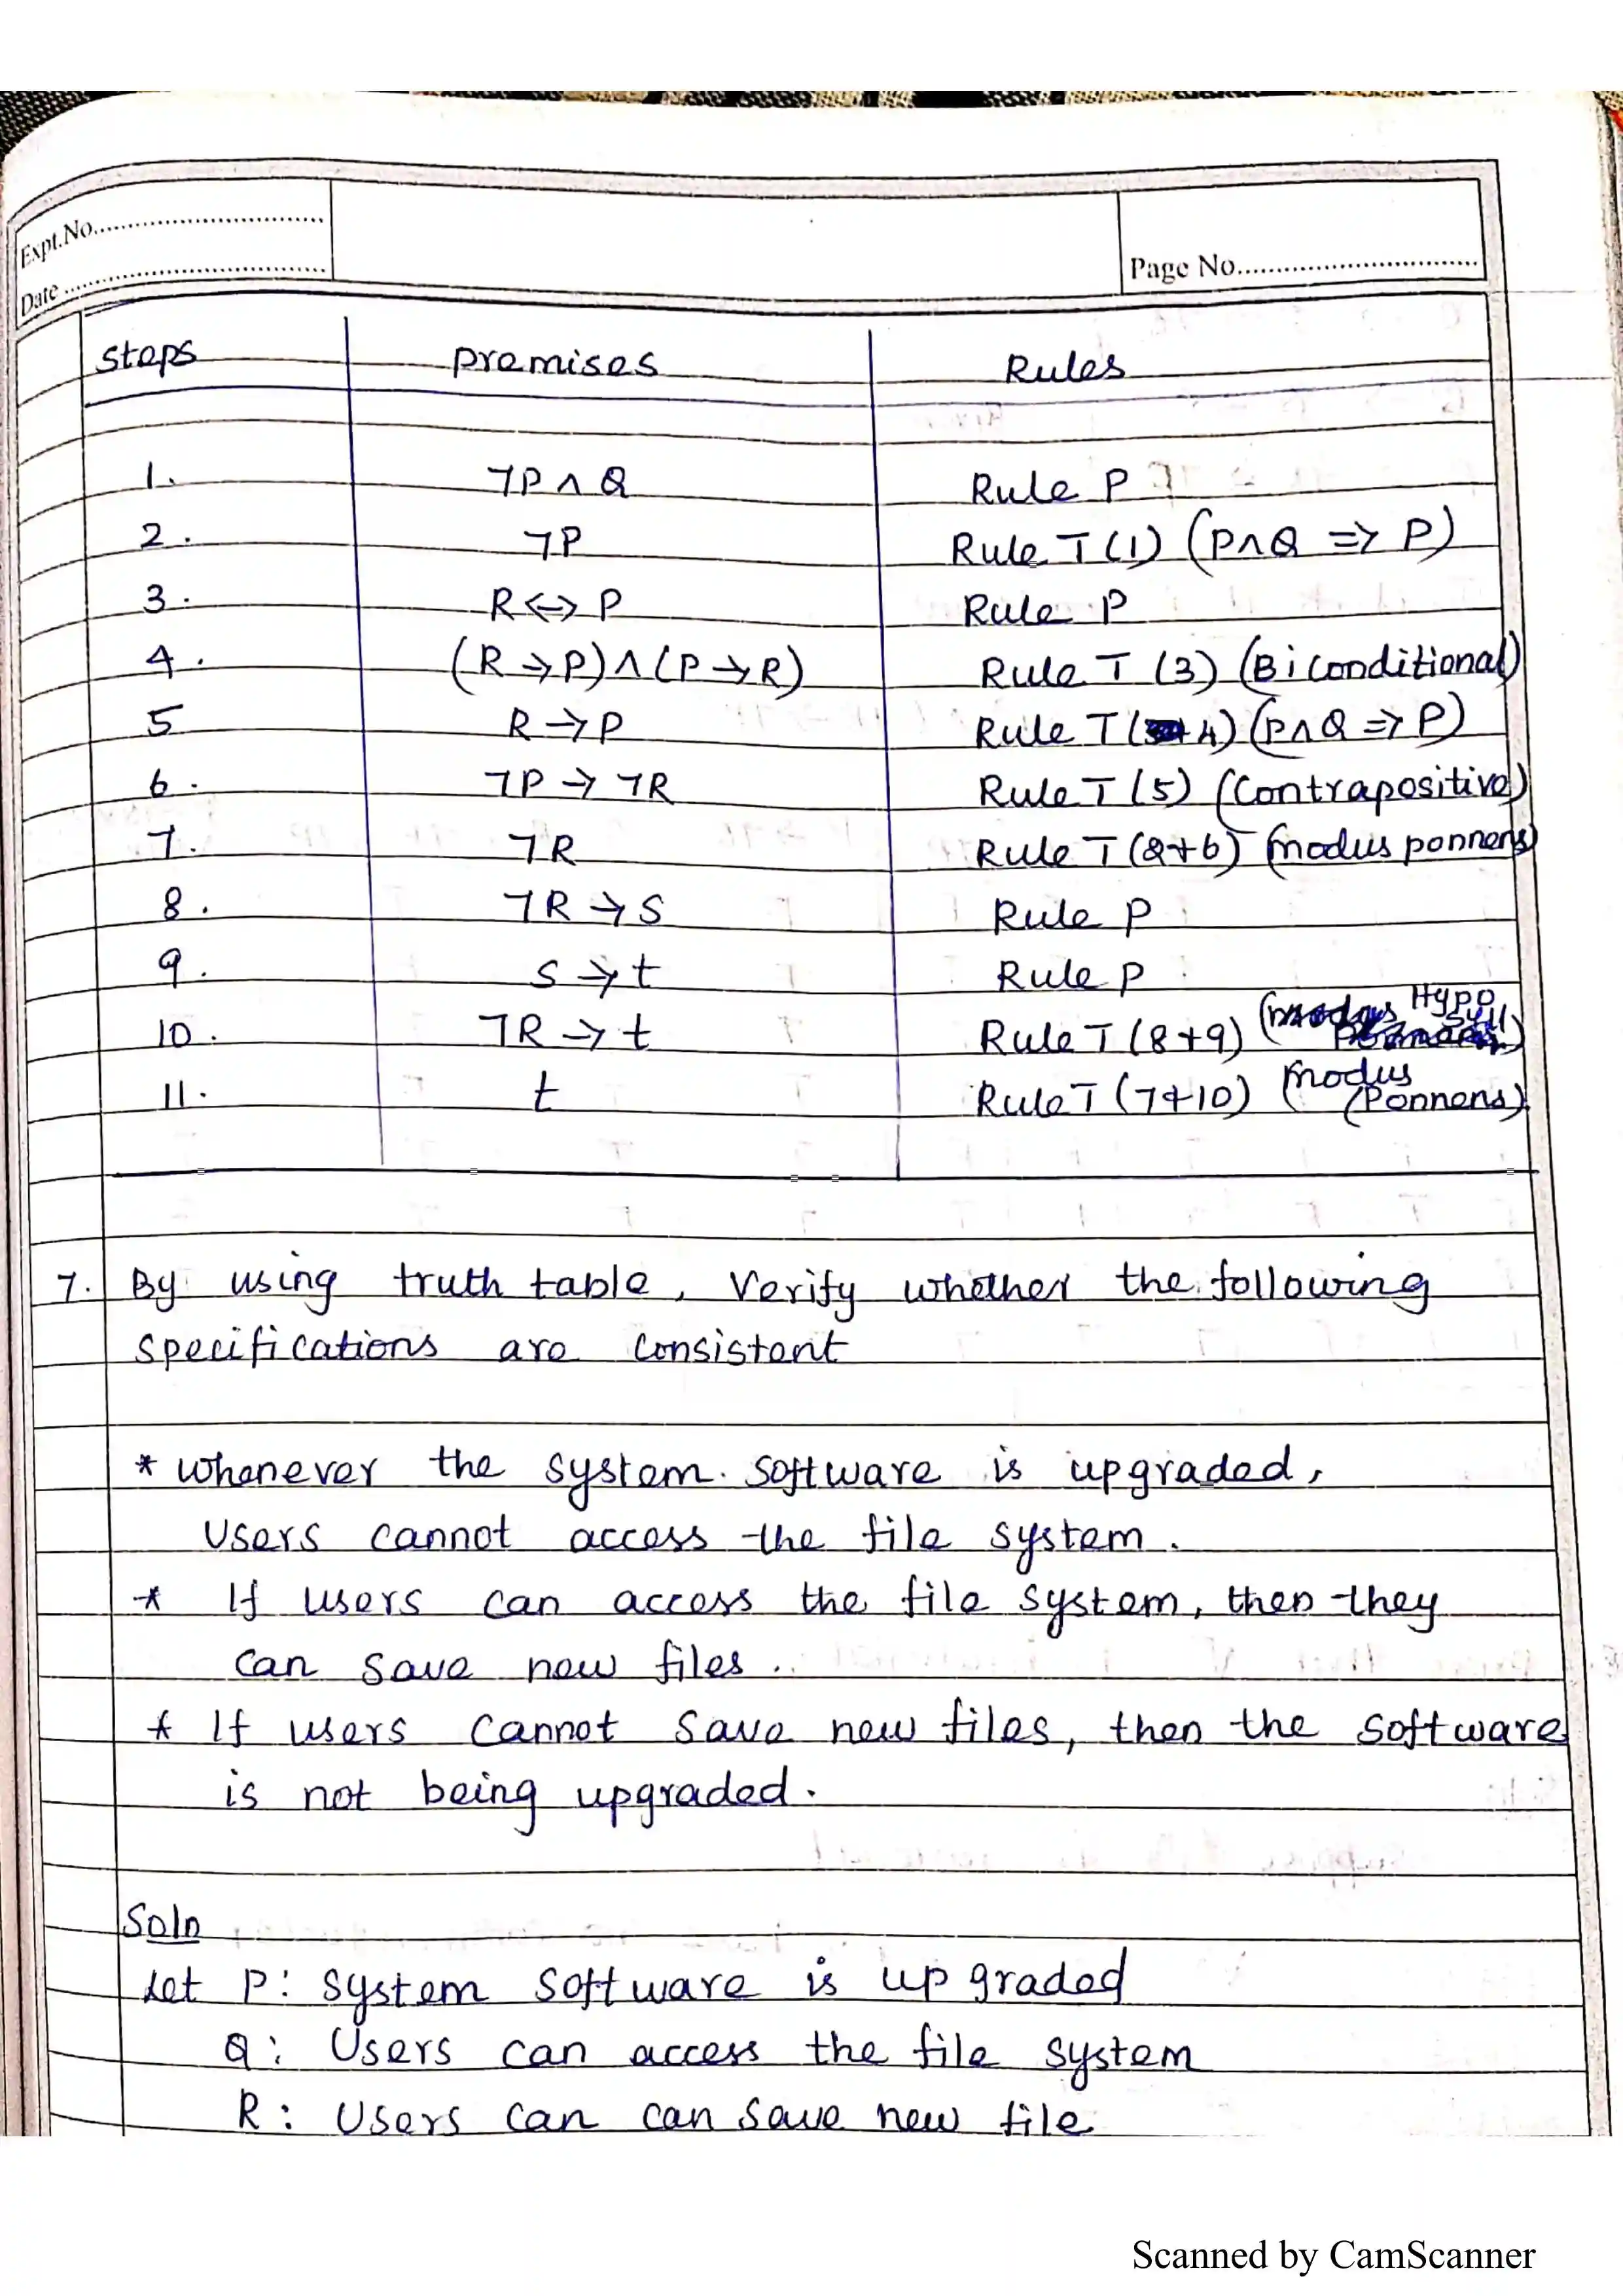 Expt.No..............................
Date ..............................
Page No..............................
Steps premises Rules
1. ¬P ∧ Q Rule P
2. ¬P Rule T (1) (P∧Q => P)
3. R <-> P Rule P
4. (R → P) ∧ (P → R) Rule T (3) (Biconditional)
5 R → P Rule T (4) (P∧Q => P)
6. ¬P → ¬R Rule T (5) (Contrapositive)
7. ¬R Rule T (2+6) (modus ponnens)
8. ¬R → S Rule P
9. S → t Rule P
10. ¬R → t Rule T (8+9) (Hypo Syll)
11. t Rule T (7+10) (Modus Ponnens)
7. By using truth table, Verify whether the following
specifications are consistent
* whenever the system software is upgraded,
users cannot access the file system.
* If users can access the file system, then they
can save new files.
* If users cannot save new files, then the software
is not being upgraded.
Soln
Let P: System software is up graded
Q: Users can access the file system
R: Users can can save new file
Scanned by CamScanner